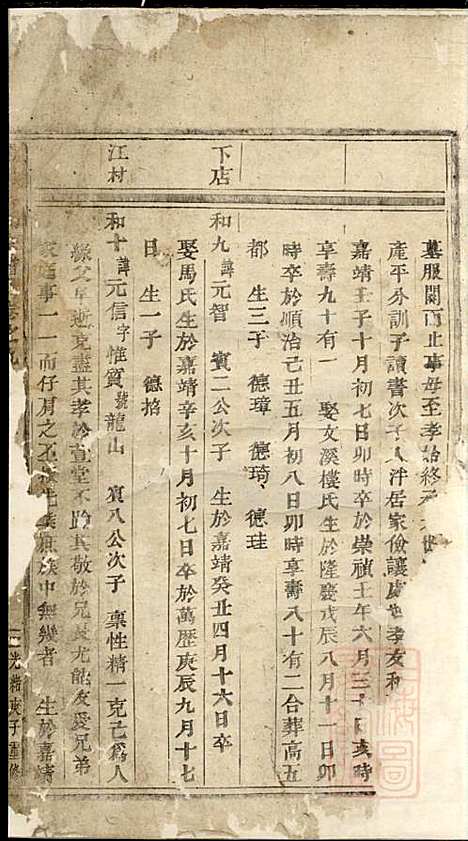 墓服闋而止事母至孝始終
產平分訓子讀書次子入泮居家儉讓處世孝友和
嘉靖壬子十月初七日卯時卒於崇禎壬午六月三日亥時
享壽九十有一 娶文溪樓氏生於隆慶戊辰八月十一日卯
時卒於順治己丑五月初八日卯時享壽八十有二合葬高五
都 生三子 德璋 德琦 德珪
下店
和九諱元智 賓二公次子 生於嘉靖癸丑四月十六日卒
娶馬氏生於嘉靖辛亥十月初七日卒於萬歷庚辰九月十七
日 生一子 德掐
江村
和十諱元信字惟質號龍山 賓八公次子 稟性精一克己爲人
緣父早逝克盡其孝於萱堂不踰其敬於兄長尤能友愛兄弟
家庭事一一而仔肩之 族中無幾者 生於嘉靖
光緒庚子重修
上海圖